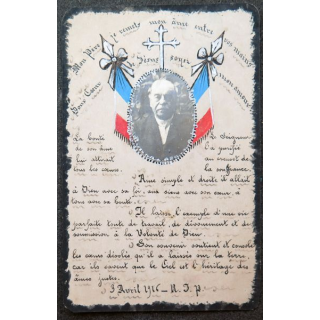 Mon Père je remets mon âme entre vos mains
Doux Cœur
Jésus
mon amour
La bonté
de son âme
lui attirait
tous les cœurs.
le Seigneur
l'a purifié
au creuset de
la souffrance.
Âme simple et droite il allait
à Dieu avec sa foi, aux siens avec son cœur, à
tous avec sa bonté.
Il laisse l'exemple d'une vie
parfaite toute de travail, de dévouement et de
soumission à la Volonté de Dieu.
Son souvenir soutient et console
les cœurs désolés qu'il a laissés sur la terre,
car ils savent que le Ciel est l'héritage des
âmes justes.
Avril